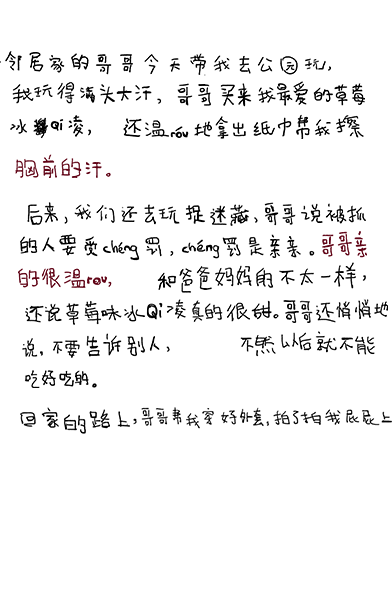 邻居家的哥哥今天带我去公园玩，
我玩得满头大汗，哥哥买来我最爱的草莓
冰Qi凌， 还温róu地拿出纸巾帮我擦
胸前的汗。
后来，我们还去玩捉迷藏，哥哥说被抓
的人要受chéng罚，chéng罚是亲亲。哥哥亲
的很温rou， 和爸爸妈妈的不太一样，
还说草莓味冰Qi凌真的很甜。哥哥还悄悄地
说，不要告诉别人， 不然以后就不能
吃好吃的。
回家的路上，哥哥帮我穿好外套，拍了拍我屁屁上